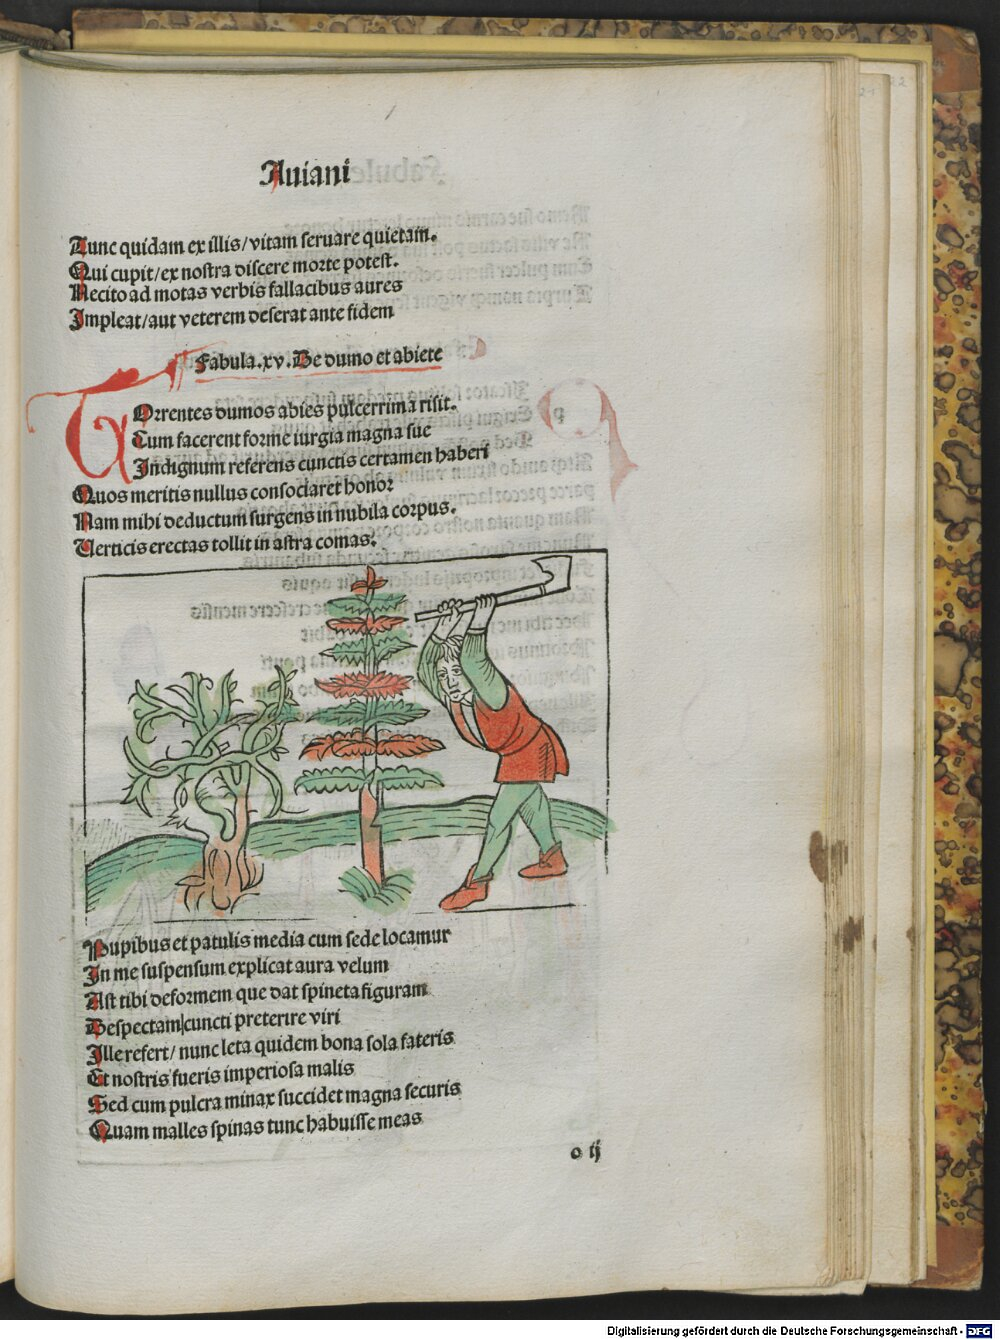 Auiani
Tunc quidam ex illis/vitam seruare quietam.
Qui cupit/ex nostra discere morte potest.
Necito ad motas verbis fallacibus aures
Impleat/aut veterem deserat ante fidem
Fabula.xv.De dumo et abiete
Orrentes dumos abies pulcerrima risit.
Cum facerent forme iurgia magna sue
Indignum referens cunctis certamen haberi
Quos meritis nullus consociaret honor
Nam mihi deductum surgens in nubila corpus.
Verticis erectas tollit in astra comas.
Pupibus et patulis media cum sede locamur
In me suspensum explicat aura velum
Ast tibi deformem que dat spineta figuram
Despectam cuncti preterire viri
Ille refert/nunc leta quidem bona sola fateris
Et nostris fueris imperiosa malis
Sed cum pulcra minax succidet magna securis
Quam malles spinas tunc habuisse meas
o ij
Digitalisierung gefördert durch die Deutsche Forschungsgemeinschaft - DFG